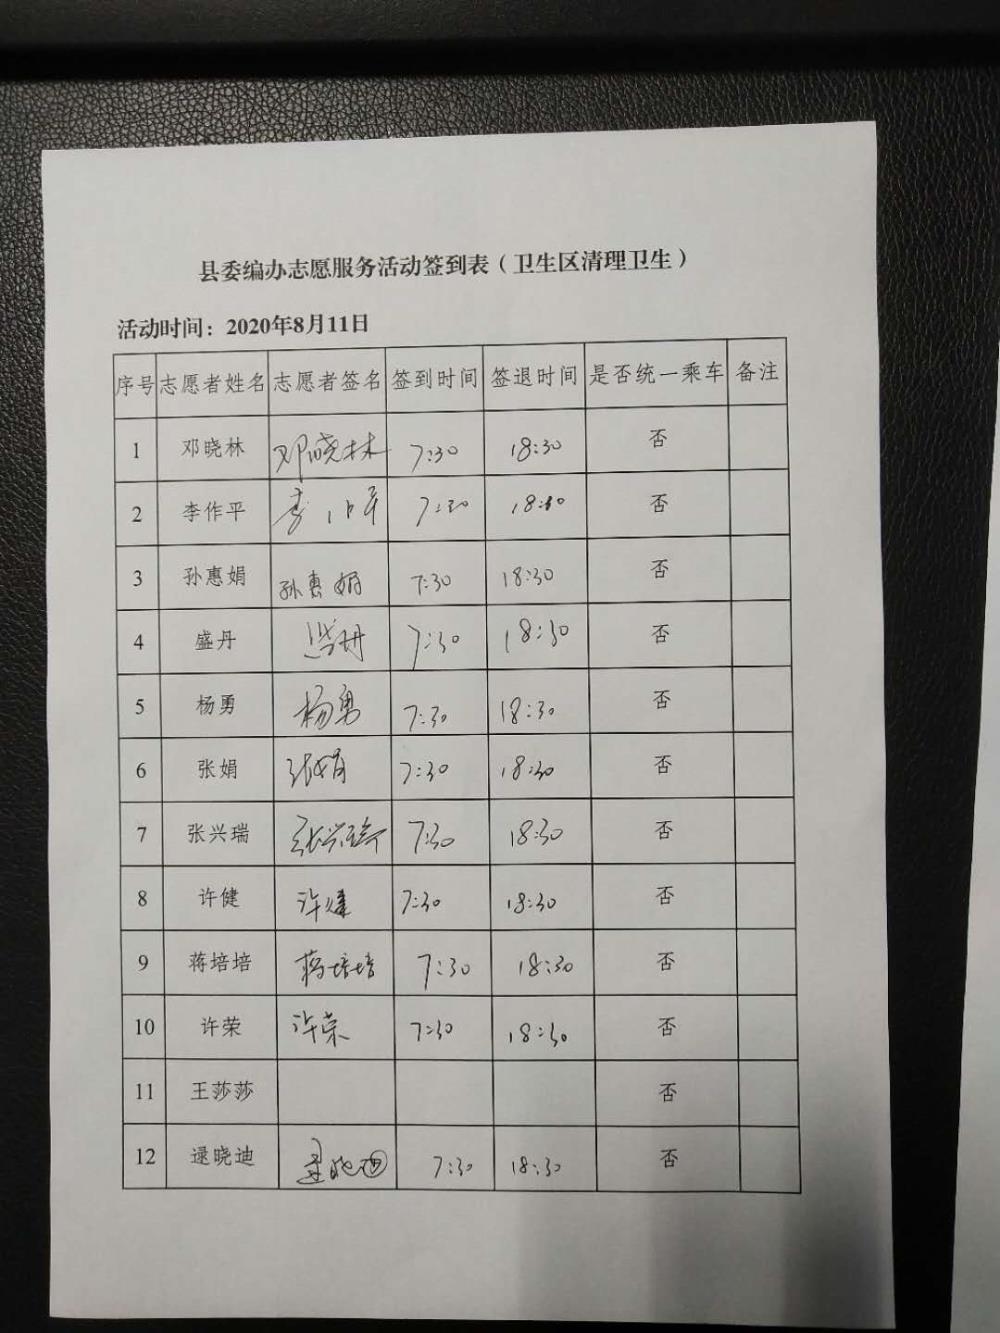 县委编办志愿服务活动签到表（卫生区清理卫生）
活动时间：2020年8月11日
序号 志愿者姓名 志愿者签名 签到时间 签退时间 是否统一乘车 备注
1 邓晓林 邓晓林 7:30 18:30 否
2 李作平 李作平 7:30 18:30 否
3 孙惠娟 孙惠娟 7:30 18:30 否
4 盛丹 盛丹 7:30 18:30 否
5 杨勇 杨勇 7:30 18:30 否
6 张娟 张娟 7:30 18:30 否
7 张兴瑞 张兴瑞 7:30 18:30 否
8 许健 许健 7:30 18:30 否
9 蒋培培 蒋培培 7:30 18:30 否
10 许荣 许荣 7:30 18:30 否
11 王莎莎 否
12 逯晓迪 逯晓迪 7:30 18:30 否